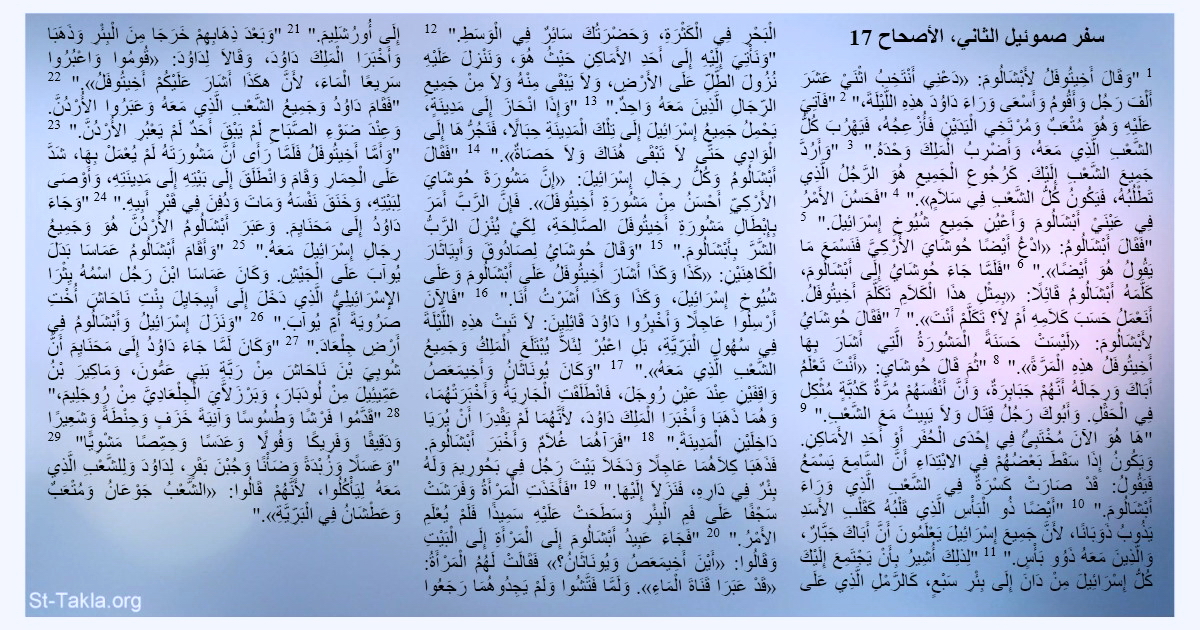 سفر صموئيل الثاني، الأصحاح 17
1 "وَقَالَ أَخِيتُوفَلُ لأَبْشَالُومَ: «دَعْنِي أَنْتَخِبُ اثْنَيْ عَشَرَ
أَلْفَ رَجُل وَأَقُومُ وَأَسْعَى وَرَاءَ دَاوُدَ هذِهِ اللَّيْلَةَ،" 2 "فَآتِيَ
عَلَيْهِ وَهُوَ مُتْعَبٌ وَمُرْتَخِي الْيَدَيْنِ فَأُزْعِجُهُ، فَيَهْرُبَ كُلُّ
الشَّعْبِ الَّذِي مَعَهُ، وَأَضْرِبُ الْمَلِكَ وَحْدَهُ." 3 "وَأَرُدَّ
جَمِيعَ الشَّعْبِ إِلَيْكَ. كَرُجُوعِ الْجَمِيعِ هُوَ الرَّجُلُ الَّذِي
تَطْلُبُهُ، فَيَكُونُ كُلُّ الشَّعْبِ فِي سَلاَمٍ»." 4 "فَحَسُنَ الأَمْرُ
فِي عَيْنَيْ أَبْشَالُومَ وَأَعْيُنِ جَمِيعِ شُيُوخِ إِسْرَائِيلَ." 5
"فَقَالَ أَبْشَالُومُ: «ادْعُ أَيْضًا حُوشَايَ الأَرْكِيَّ فَنَسْمَعَ مَا
يَقُولُ هُوَ أَيْضًا»." 6 "فَلَمَّا جَاءَ حُوشَايُ إِلَى أَبْشَالُومَ،
كَلَّمَهُ أَبْشَالُومُ قَائِلًا: «بِمِثْلِ هذَا الْكَلاَمِ تَكَلَّمَ أَخِيتُوفَلُ.
أَنَعْمَلُ حَسَبَ كَلاَمِهِ أَمْ لاَ؟ تَكَلَّمْ أَنْتَ»." 7 "فَقَالَ حُوشَايُ
لأَبْشَالُومَ: «لَيْسَتْ حَسَنَةً الْمَشُورَةُ الَّتِي أَشَارَ بِهَا
أَخِيتُوفَلُ هذِهِ الْمَرَّةَ»." 8 "ثُمَّ قَالَ حُوشَايُ: «أَنْتَ تَعْلَمُ
أَبَاكَ وَرِجَالَهُ أَنَّهُمْ جَبَابِرَةٌ، وَأَنَّ أَنْفُسَهُمْ مُرَّةٌ كَدُبَّةٍ مُثْكِل
فِي الْحَقْلِ. وَأَبُوكَ رَجُلُ قِتَال وَلاَ يَبِيتُ مَعَ الشَّعْبِ." 9
"هَا هُوَ الآنَ مُخْتَبِئٌ فِي إِحْدَى الْحُفَرِ أَوْ أَحَدِ الأَمَاكِنِ.
وَيَكُونُ إِذَا سَقَطَ بَعْضُهُمْ فِي الابْتِدَاءِ أَنَّ السَّامِعَ يَسْمَعُ
فَيَقُولُ: قَدْ صَارَتْ كَسْرَةٌ فِي الشَّعْبِ الَّذِي وَرَاءَ
أَبْشَالُومَ." 10 "أَيْضًا ذُو الْبَأْسِ الَّذِي قَلْبُهُ كَقَلْبِ الأَسَدِ
يَذُوبُ ذَوَبَانًا، لأَنَّ جَمِيعَ إِسْرَائِيلَ يَعْلَمُونَ أَنَّ أَبَاكَ جَبَّارٌ،
وَالَّذِينَ مَعَهُ ذَوُو بَأْسٍ." 11 "لِذلِكَ أُشِيرُ بِأَنْ يَجْتَمِعَ إِلَيْكَ
كُلُّ إِسْرَائِيلَ مِنْ دَانَ إِلَى بِئْرِ سَبْعٍ، كَالرَّمْلِ الَّذِي عَلَى
الْبَحْرِ فِي الْكَثْرَةِ، وَحَضْرَتُكَ سَائِرٌ فِي الْوَسَطِ." 12
"وَنَأْتِيَ إِلَيْهِ إِلَى أَحَدِ الأَمَاكِنِ حَيْثُ هُوَ، وَنَنْزِلَ عَلَيْهِ
نُزُولَ الطَّلِّ عَلَى الأَرْضِ، وَلاَ يَبْقَى مِنْهُ وَلاَ مِنْ جَمِيعِ
الرِّجَالِ الَّذِينَ مَعَهُ وَاحِدٌ." 13 "وَإِذَا انْحَازَ إِلَى مَدِينَةٍ،
يَحْمِلُ جَمِيعُ إِسْرَائِيلَ إِلَى تِلْكَ الْمَدِينَةِ حِبَالًا، فَنَجُرُّهَا إِلَى
الْوَادِي حَتَّى لاَ تَبْقَى هُنَاكَ وَلاَ حَصَاةٌ»." 14 "فَقَالَ
أَبْشَالُومُ وَكُلُّ رِجَالِ إِسْرَائِيلَ: «إِنَّ مَشُورَةَ حُوشَايَ
الأَرْكِيِّ أَحْسَنُ مِنْ مَشُورَةِ أَخِيتُوفَلَ». فَإِنَّ الرَّبَّ أَمَرَ
بِإِبْطَالِ مَشُورَةِ أَخِيتُوفَلَ الصَّالِحَةِ، لِكَيْ يُنْزِلَ الرَّبُّ
الشَّرَّ بِأَبْشَالُومَ." 15 "وَقَالَ حُوشَايُ لِصَادُوقَ وَأَبِيَاثَارَ
الْكَاهِنَيْنِ: «كَذَا وَكَذَا أَشَارَ أَخِيتُوفَلُ عَلَى أَبْشَالُومَ وَعَلَى
شُيُوخِ إِسْرَائِيلَ، وَكَذَا وَكَذَا أَشَرْتُ أَنَا." 16 "فَالآنَ
أَرْسِلُوا عَاجِلًا وَأَخْبِرُوا دَاوُدَ قَائِلِينَ: لاَ تَبِتْ هذِهِ اللَّيْلَةَ
فِي سُهُولِ الْبَرِّيَّةِ، بَلِ اعْبُرْ لِئَلاَّ يُبْتَلَعَ الْمَلِكُ وَجَمِيعُ
الشَّعْبِ الَّذِي مَعَهُ»." 17 "وَكَانَ يُونَاثَانُ وَأَخِيمَعَصُ
وَاقِفَيْنِ عِنْدَ عَيْنِ رُوجَلَ، فَانْطَلَقَتِ الْجَارِيَةُ وَأَخْبَرَتْهُمَا،
وَهُمَا ذَهَبَا وَأَخْبَرَا الْمَلِكَ دَاوُدَ، لأَنَّهُمَا لَمْ يَقْدِرَا أَنْ يُرَيَا
دَاخِلَيْنِ الْمَدِينَةَ." 18 "فَرَآهُمَا غُلاَمٌ وَأَخْبَرَ أَبْشَالُومَ.
فَذَهَبَا كِلاَهُمَا عَاجِلًا وَدَخَلاَ بَيْتَ رَجُل فِي بَحُورِيمَ وَلَهُ
بِئْرٌ فِي دَارِهِ، فَنَزَلاَ إِلَيْهَا." 19 "فَأَخَذَتِ الْمَرْأَةُ وَفَرَشَتْ
سَجْفًا عَلَى فَمِ الْبِئْرِ وَسَطَحَتْ عَلَيْهِ سَمِيذًا فَلَمْ يُعْلَمِ
الأَمْرُ." 20 "فَجَاءَ عَبِيدُ أَبْشَالُومَ إِلَى الْمَرْأَةِ إِلَى الْبَيْتِ
وَقَالُوا: «أَيْنَ أَخِيمَعَصُ وَيُونَاثَانُ؟» فَقَالَتْ لَهُمُ الْمَرْأَةُ:
«قَدْ عَبَرَا قَنَاةَ الْمَاءِ». وَلَمَّا فَتَّشُوا وَلَمْ يَجِدُوهُمَا رَجَعُوا
إِلَى أُورُشَلِيمَ." 21 "وَبَعْدَ ذِهَابِهِمْ خَرَجَا مِنَ الْبِئْرِ وَذَهَبَا
وَأَخْبَرَا الْمَلِكَ دَاوُدَ، وَقَالاَ لِدَاوُدَ: «قُومُوا وَاعْبُرُوا
سَرِيعًا الْمَاءَ، لأَنَّ هكَذَا أَشَارَ عَلَيْكُمْ أَخِيتُوفَلُ»." 22
"فَقَامَ دَاوُدُ وَجَمِيعُ الشَّعْبِ الَّذِي مَعَهُ وَعَبَرُوا الأُرْدُنَّ.
وَعِنْدَ ضَوْءِ الصَّبَاحِ لَمْ يَبْقَ أَحَدٌ لَمْ يَعْبُرِ الأُرْدُنَّ." 23
"وَأَمَّا أَخِيتُوفَلُ فَلَمَّا رَأَى أَنَّ مَشُورَتَهُ لَمْ يُعْمَلْ بِهَا، شَدَّ
عَلَى الْحِمَارِ وَقَامَ وَانْطَلَقَ إِلَى بَيْتِهِ إِلَى مَدِينَتِهِ، وَأَوْصَى
لِبَيْتِهِ، وَخَنَقَ نَفْسَهُ وَمَاتَ وَدُفِنَ فِي قَبْرِ أَبِيهِ." 24 "وَجَاءَ
دَاوُدُ إِلَى مَحَنَايِمَ. وَعَبَرَ أَبْشَالُومُ الأُرْدُنَّ هُوَ وَجَمِيعُ
رِجَالِ إِسْرَائِيلَ مَعَهُ." 25 "وَأَقَامَ أَبْشَالُومُ عَمَاسَا بَدَلَ
يُوآبَ عَلَى الْجَيْشِ. وَكَانَ عَمَاسَا ابْنَ رَجُل اسْمُهُ يِثْرَا
الإِسْرَائِيلِيُّ الَّذِي دَخَلَ إِلَى أَبِيجَايِلَ بِنْتِ نَاحَاشَ أُخْتِ
صَرُويَةَ أُمِّ يُوآبَ." 26 "وَنَزَلَ إِسْرَائِيلُ وَأَبْشَالُومُ فِي
أَرْضِ جِلْعَادَ." 27 "وَكَانَ لَمَّا جَاءَ دَاوُدُ إِلَى مَحَنَايِمَ أَنَّ
شُوبِيَ بْنَ نَاحَاشَ مِنْ رَبَّةِ بَنِي عَمُّونَ، وَمَاكِيرَ بْنَ
عَمِّيئِيلَ مِنْ لُودَبَارَ، وَبَرْزَلاَّيَ الْجِلْعَادِيَّ مِنْ رُوجَلِيمَ،"
28 "قَدَّمُوا فَرْشًا وَطُسُوسًا وَآنِيَةَ خَزَفٍ وَحِنْطَةً وَشَعِيرًا
وَدَقِيقًا وَفَرِيكًا وَفُولًا وَعَدَسًا وَحِمِّصًا مَشْوِيًّا" 29
"وَعَسَلًا وَزُبْدَةً وَضَأْنًا وَجُبْنَ بَقَرٍ، لِدَاوُدَ وَلِلشَّعْبِ الَّذِي
مَعَهُ لِيَأْكُلُوا، لأَنَّهُمْ قَالُوا: «الشَّعْبُ جَوْعَانُ وَمُتْعَبٌ
وَعَطْشَانُ فِي الْبَرِّيَّةِ»."
St-Takla.org